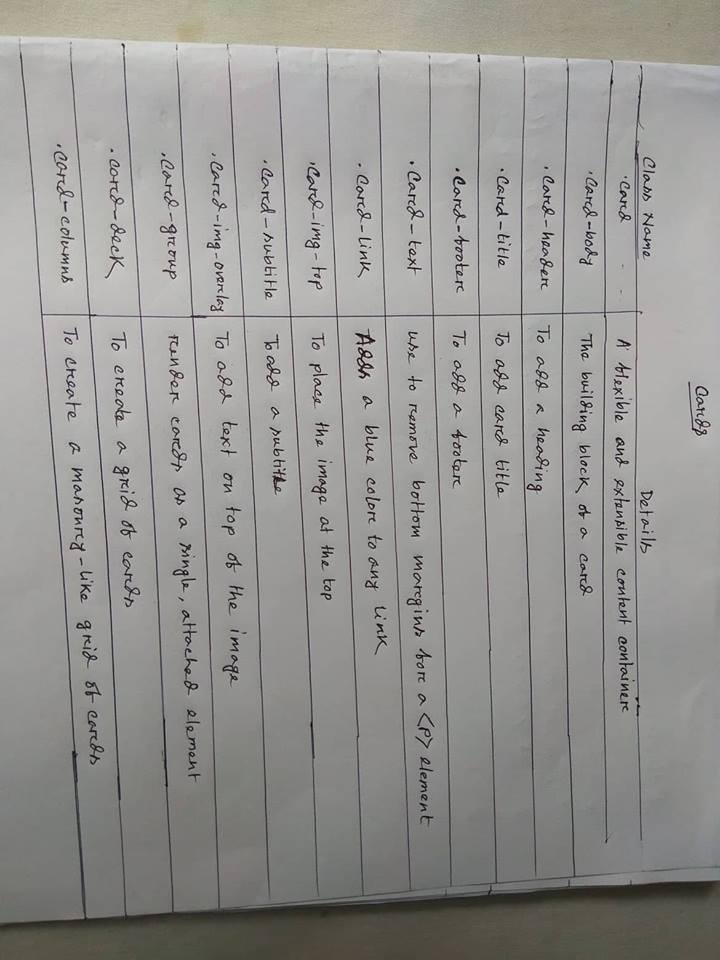 Cards
Class Name Details
.card A flexible and extensible content container
.card-body The building block of a card
.card-header To add a heading
.card-title To add card title
.card-footer To add a footer
.card-text use to remove bottom margins for a <P> element
.card-link Adds a blue color to any link
.card-img-top To place the image at the top
.card-subtitle To add a subtitle
.card-img-overlay To add text on top of the image
.card-group render cards as a single, attached element
.card-deck To create a grid of cards
.card-columns To create a masonry-like grid of cards